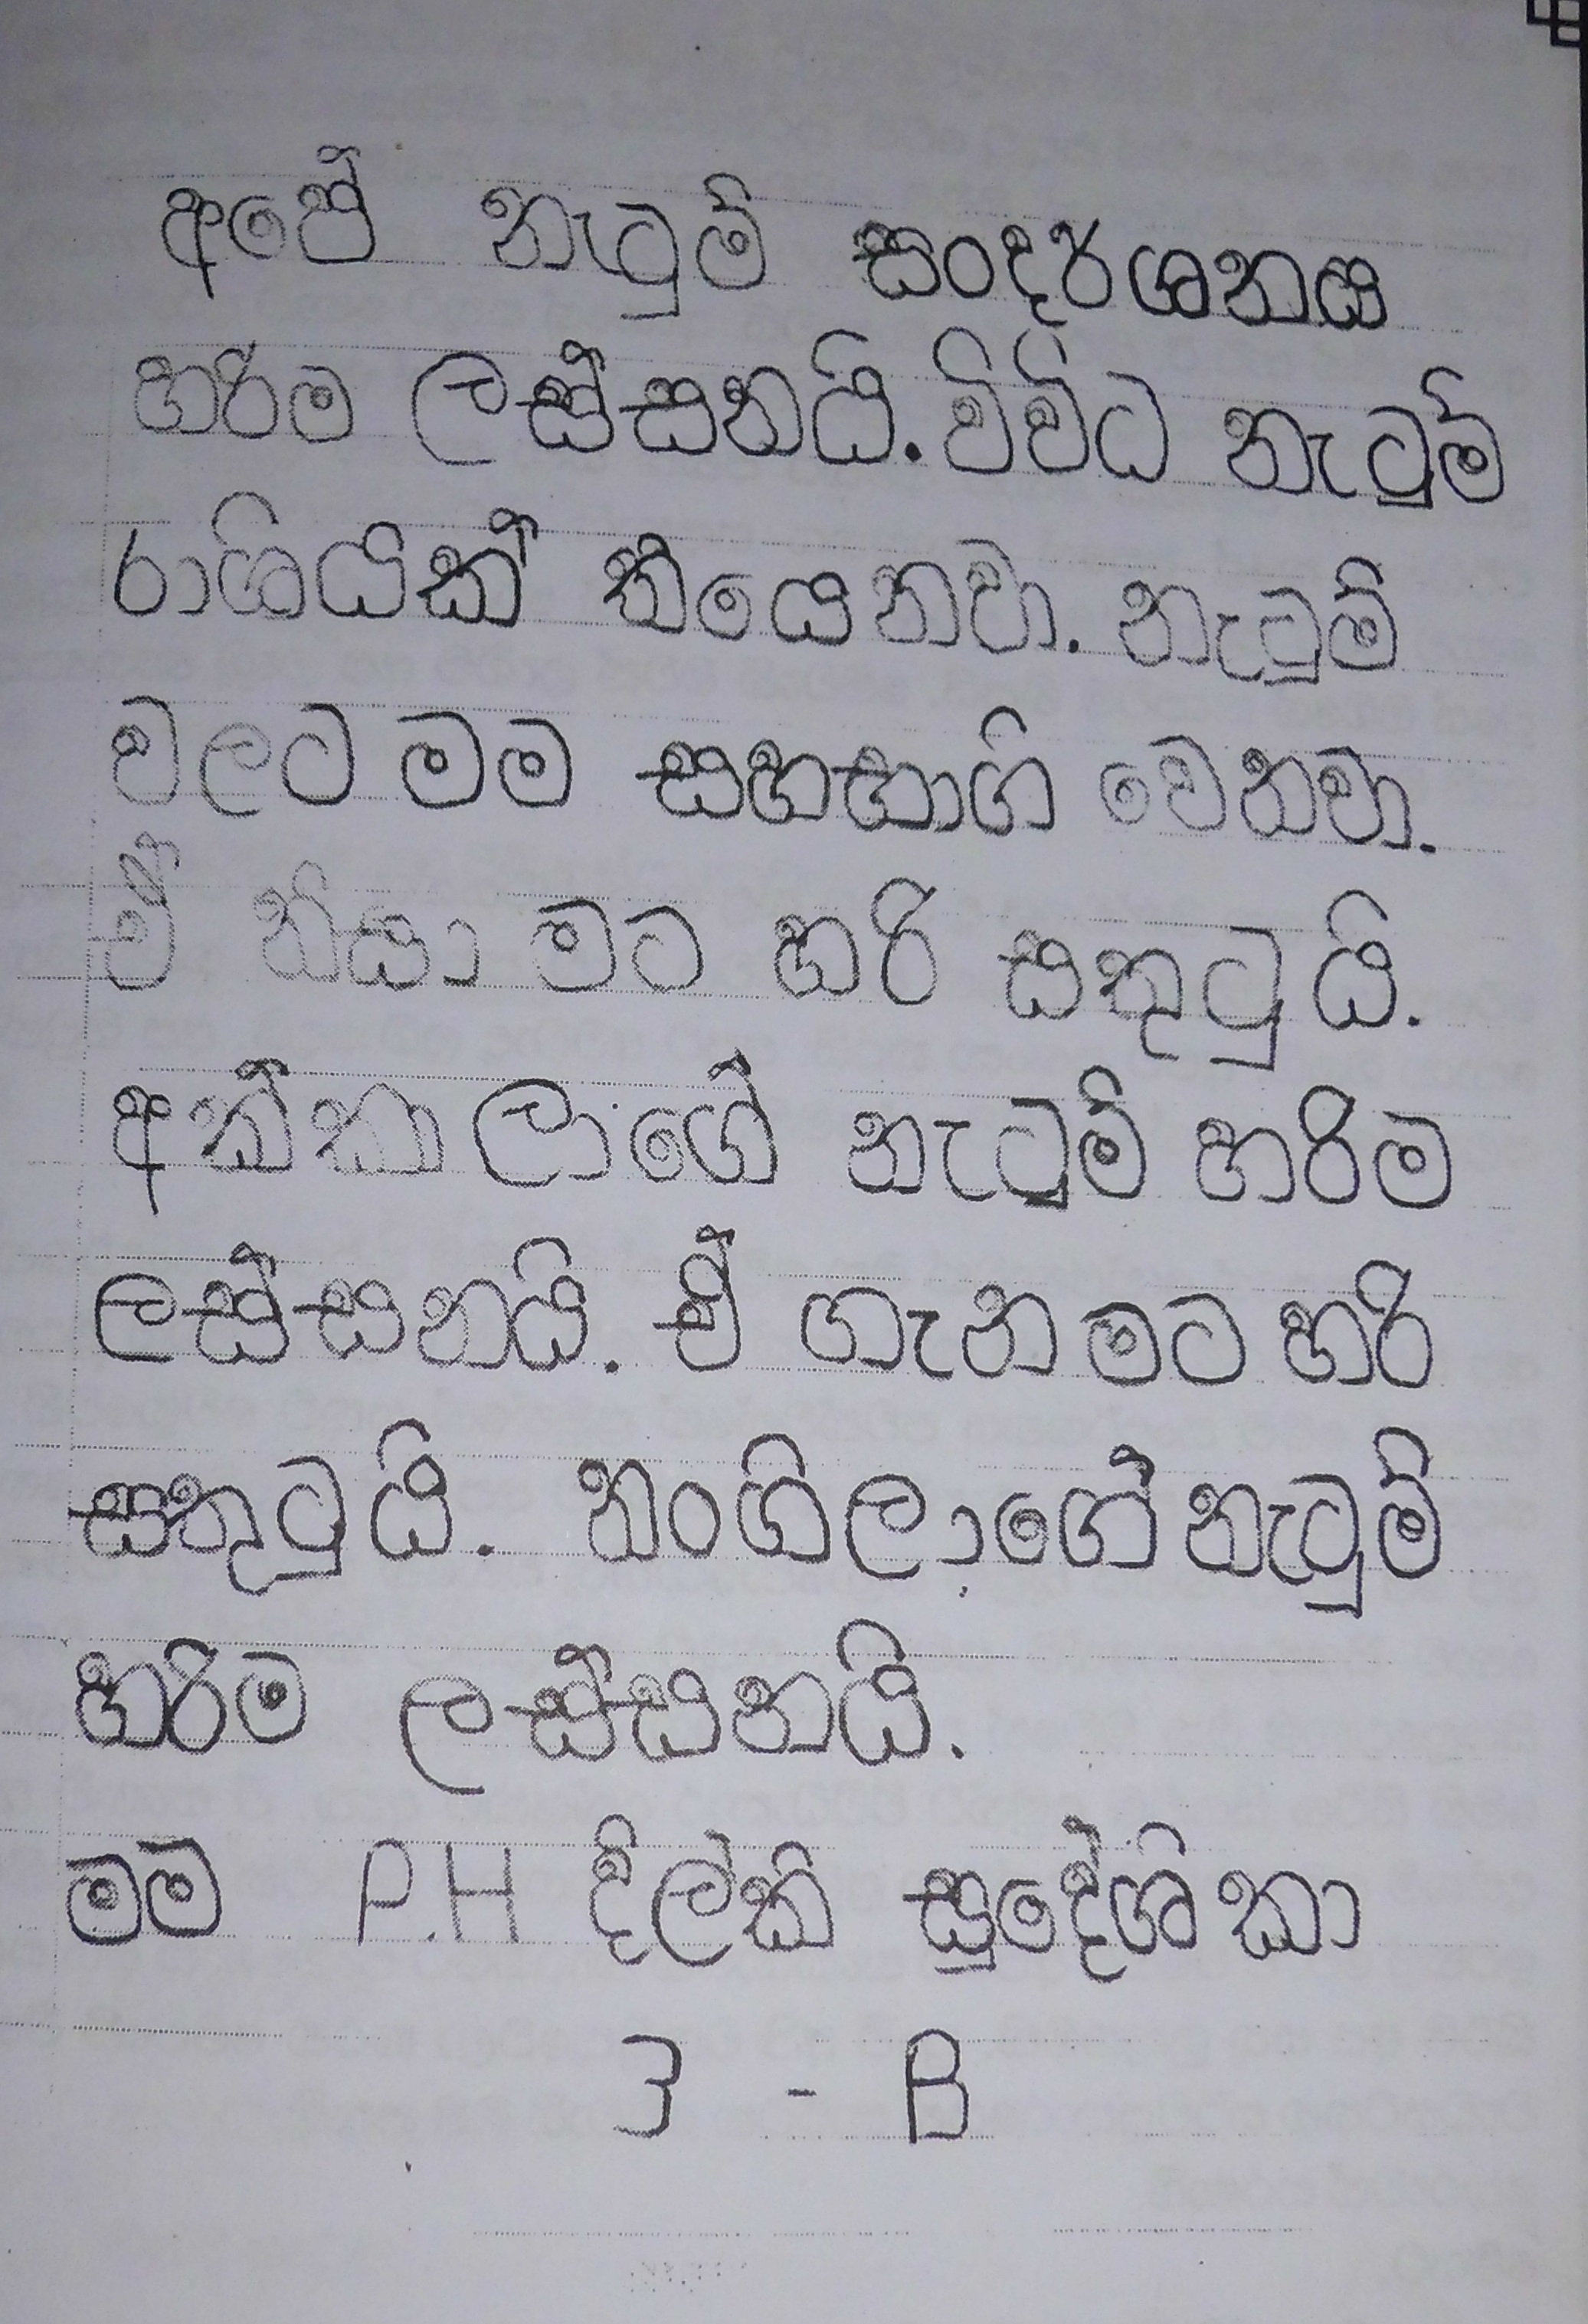 අපේ නැටුම් සංදර්ශනය
හරිම ලස්සනයි. විවිධ නැටුම්
රාශියක් තියෙනවා. නැටුම්
වලට මම සහභාගි වෙනවා.
ඒ නිසා මට හරි සතුටුයි.
අක්කාලාගේ නැටුම් හරිම
ලස්සනයි. ඒ ගැන මට හරි
සතුටුයි. නංගිලාගේ නැටුම්
හරිම ලස්සනයි.
මම P.H දිල්කි සුදේශිකා
3 - B